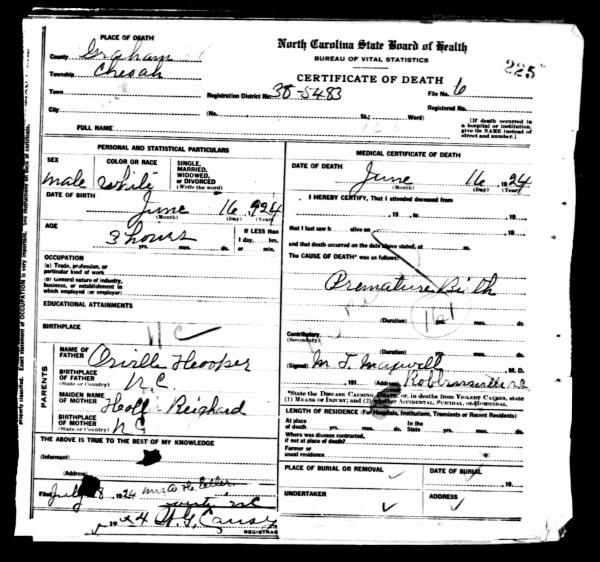 PLACE OF DEATH
County Graham
Township Cheoah
Town
City
North Carolina State Board of Health
BUREAU OF VITAL STATISTICS
CERTIFICATE OF DEATH
225
Registration District No. 38-5483
File No. 6
Registered No.
(No. St.; Ward)
[If death occurred in
a hospital or institution,
give its NAME instead of
street and number.]
FULL NAME
PERSONAL AND STATISTICAL PARTICULARS
SEX
male
COLOR OR RACE
white
SINGLE,
MARRIED,
WIDOWED,
or DIVORCED
(Write the word)
DATE OF BIRTH
June 16, 1924
(Month) (Day) (Year)
AGE
3 hours
yrs. mos. ds.
If LESS than
1 day, hrs.
or min.
OCCUPATION
(a) Trade, profession, or
particular kind of work
(b) General nature of industry,
business, or establishment in
which employed (or employer)
EDUCATIONAL ATTAINMENTS
BIRTHPLACE
NC
PARENTS
NAME OF
FATHER
Orville Hooper
BIRTHPLACE
OF FATHER
(State or Country)
N.C.
MAIDEN NAME
OF MOTHER
BIRTHPLACE
OF MOTHER
(State or Country)
NC
THE ABOVE IS TRUE TO THE BEST OF MY KNOWLEDGE
(Informant)
(Address)
Filed July 28 1924
REGISTRAR
MEDICAL CERTIFICATE OF DEATH
DATE OF DEATH
June 16, 1924
(Month) (Day) (Year)
I HEREBY CERTIFY, That I attended deceased from
, 19 , to , 19 ,
that I last saw h alive on , 19 ,
and that death occurred on the date above stated, at m.
The CAUSE OF DEATH* was as follows:
Premature Birth
161
(Duration) yrs. mos. ds.
Contributory
(Secondary)
(Duration) yrs. mos. ds.
(Signed) M. T. Maxwell M. D.
, 191 (Address) Robbinsville NC
*State the DISEASE CAUSING DEATH; or, in deaths from VIOLENT CAUSES, state
(1) MEANS OF INJURY; and (2) whether ACCIDENTAL, SUICIDAL, or HOMICIDAL.
LENGTH OF RESIDENCE (For Hospitals, Institutions, Transients or Recent Residents)
At place
of death yrs. mos. ds.
In the
State yrs. mos. ds.
Where was disease contracted,
if not at place of death?
Former or
usual residence
PLACE OF BURIAL OR REMOVAL
DATE OF BURIAL
, 19
UNDERTAKER
ADDRESS